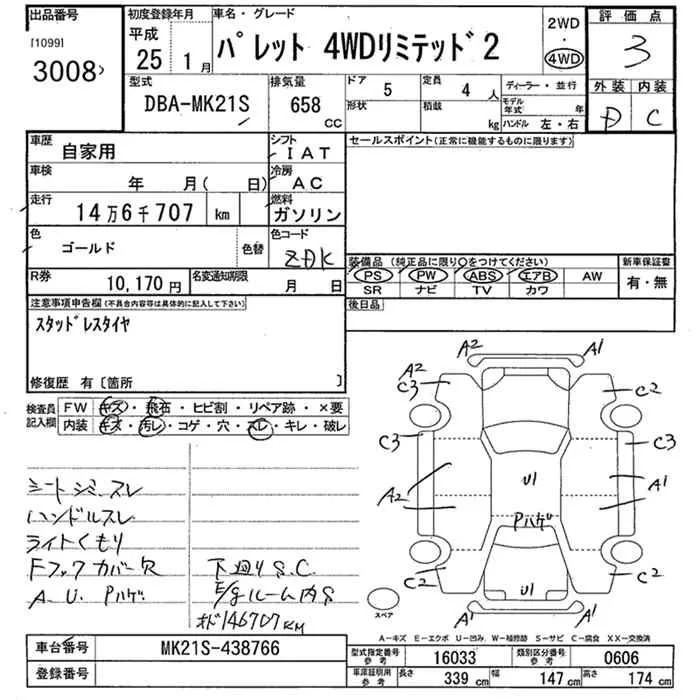 出品番号
[1099]
3008
初度登録年月
平成
25 1月
車名・グレード
パレット 4WDリミテッド2
2WD
・
4WD
評価点
3
外装 内装
D C
型式
DBA-MK21S
排気量
658 CC
ドア 5
形状
定員 4人
積載 kg
ディーラー・並行
モデル年式 年
ハンドル 左・右
車歴 自家用
シフト IAT
車検 年 月( 日)
冷房 AC
走行 14万6千707 km
燃料 ガソリン
色 ゴールド 色替
色コード ZDK
R券 10,170円
名変通知期限 月 日
セールスポイント(正常に機能するものに限ります)
装備品(純正品に限り○をつけてください)
PS PW ABS エアB AW
SR ナビ TV カワ
新車保証書
有・無
後日品
注意事項申告欄(不具合内容等は具体的に記入して下さい)
スタッドレスタイヤ
修復歴 有〔箇所 〕
検査員記入欄
FW キズ・飛石・ヒビ割・リペア跡・×要
内装 キズ・汚レ・コゲ・穴・スレ・キレ・破レ
シートシミ、スレ
ハンドルスレ
ライトくもり
Fフックカバー欠
A、U、Pハゲ
下廻りS.C.
E/gルーム内S
オド146707KM
A2 A1
A2 C3 C2
C3 C3
A2 U1 A1
Pハゲ
C2 U1 C2
A1 A1
スペア
A-キズ E-エクボ U-凹み W-補修跡 S-サビ C-腐食 XX-交換済
車台番号 MK21S-438766
登録番号
型式指定番号 参考 16033
類別区分番号 参考 0606
車庫証明用 参考
長さ 339cm 幅 147cm 高さ 174cm